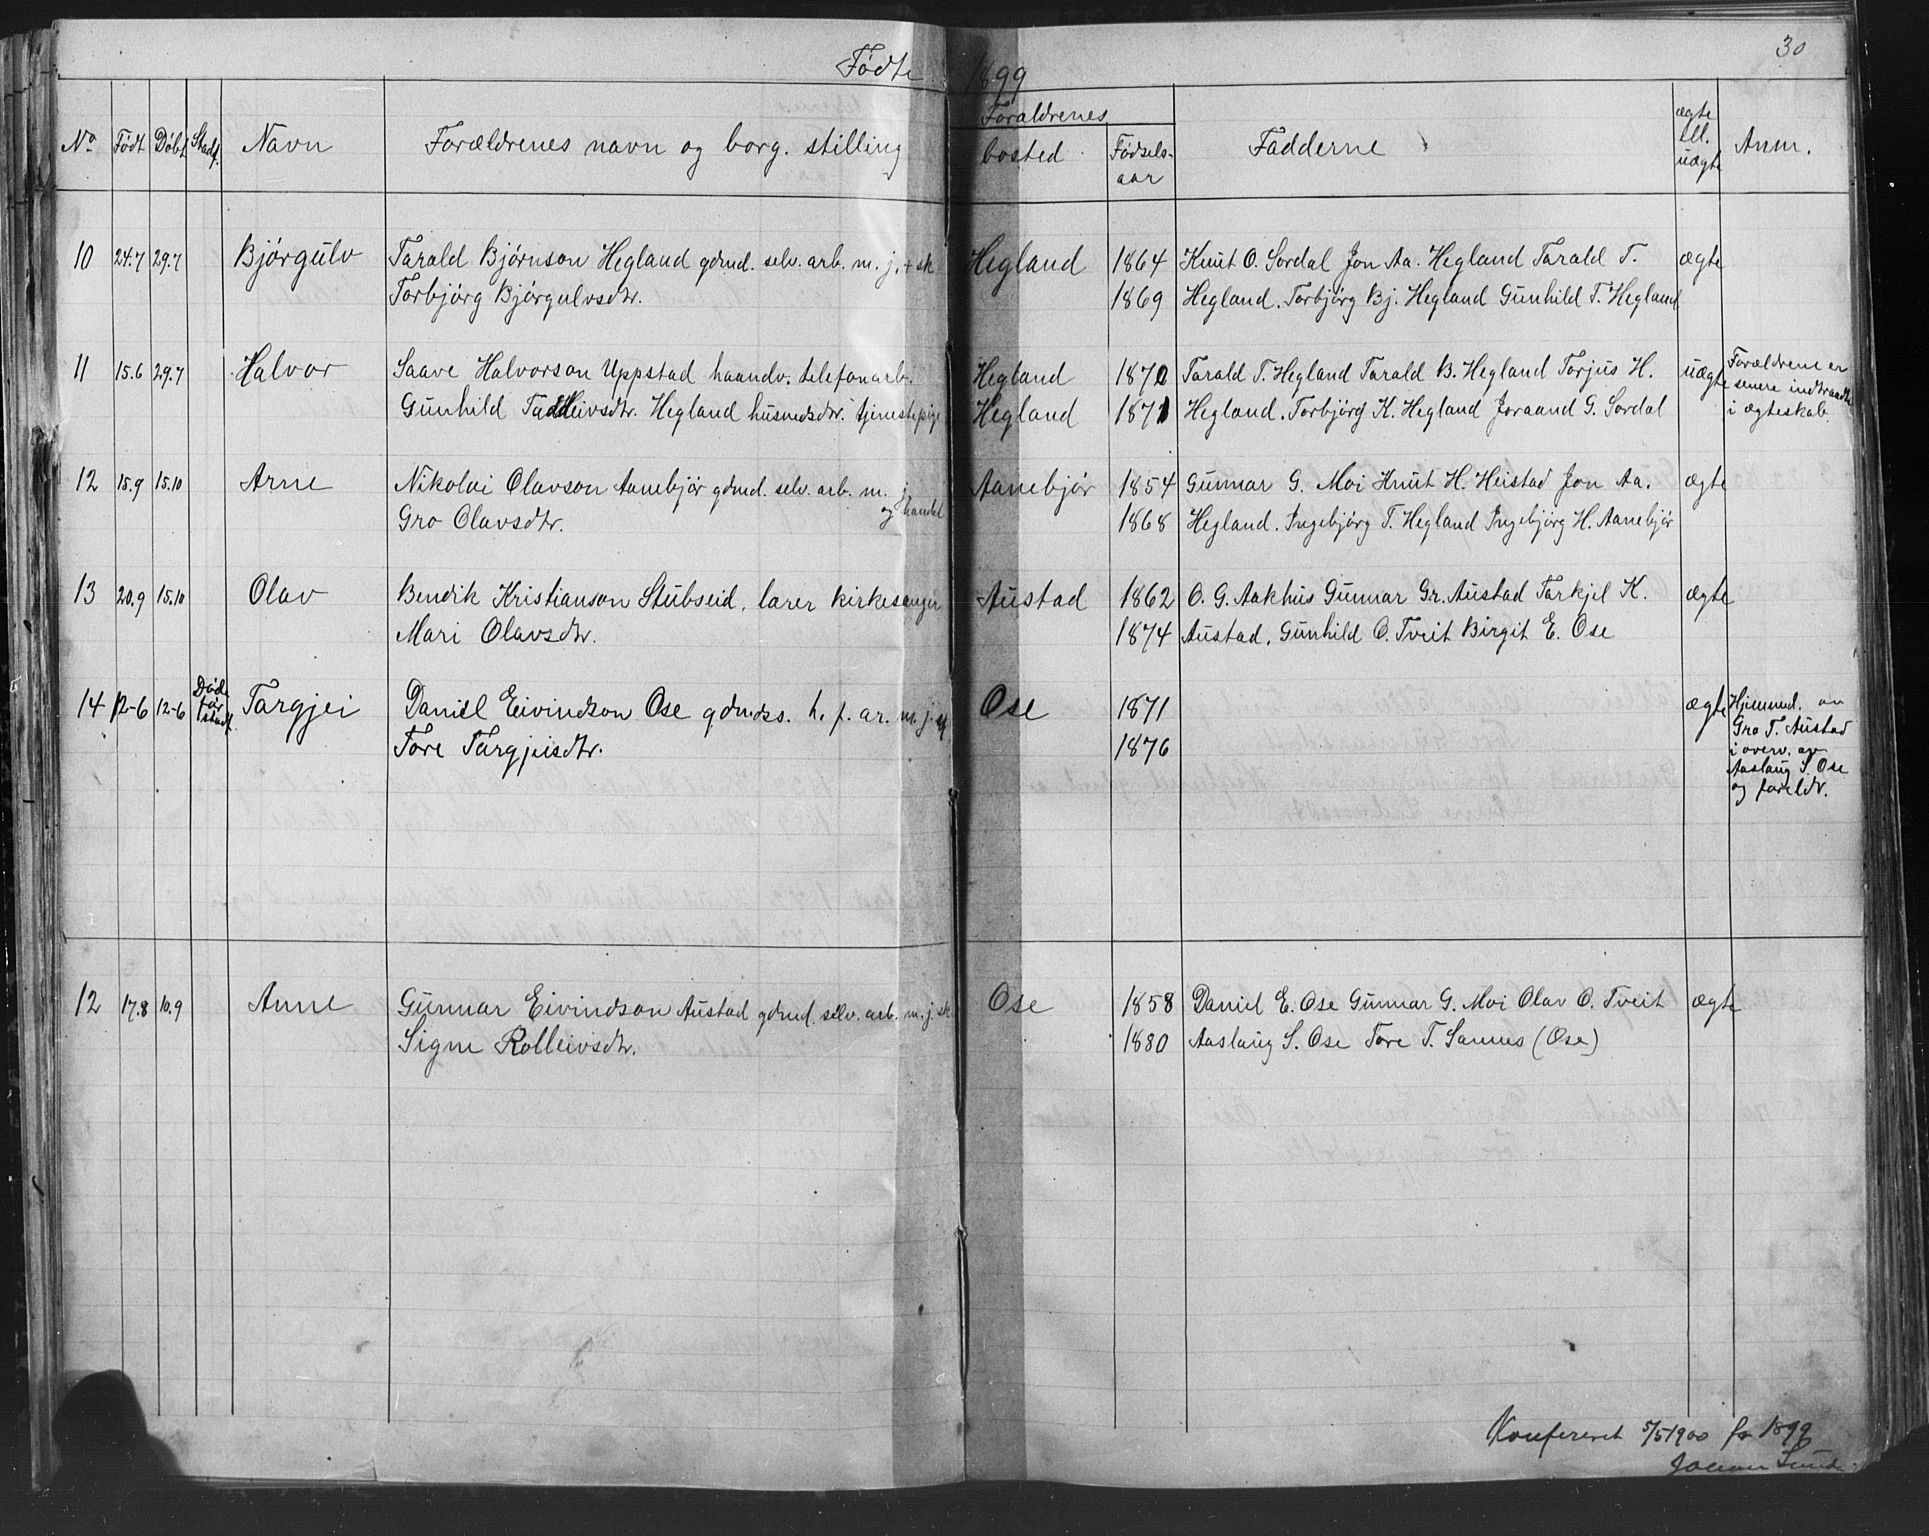 30
Fødte 1899
No Født Døbt Stadf. Navn Forældrenes navn og borg. stilling Forældrenes bosted Fødsels-aar Fadderne ægte ell. uægte Anm.
10 24.7 29.7 Bjørgulv Tarald Bjørnson Hegland gdmd. selv. arb. m. j. + sk Hegland 1864 Knut O. Sordal Jon Aa. Hegland Tarald T. ægte
Torbjørg Bjørgulvsdtr. 1869 Hegland. Torbjørg Bj. Hegland Gunhild T. Hegland
11 15.6 29.7 Halvor Saave Halvorson Uppstad haandv. telefonarb. Hegland 1870 Tarald T. Hegland Tarald B. Hegland Torjus H. uægte Forældrene er
senere indtraadte
Gunhild Tadleivsdtr. Hegland husmdsdtr. tjenestepige Hegland 1871 Hegland. Torbjørg K. Hegland Joraand G. Sordal i ægteskab.
12 15.9 15.10 Arne Nikolai Olavson Aanebjør gdmd. selv. arb. m. j. Aanebjør 1854 Gunnar G. Moi Knut H. Heistad Jon Aa. ægte
og handel
Gro Olavsdtr. 1868 Hegland. Ingebjørg T. Hegland Ingebjørg H. Aanebjør
13 20.9 15.10 Olav Bendik Kristianson Stubseid, lærer kirkesanger Austad 1862 O. G. Aakhus Gunnar Gr. Austad Tarkjel K. ægte
Mari Olavsdtr. 1874 Austad, Gunhild O. Tveit Birgit E. Ose
14 12-6 12-6 Døde før stadf. Targjei Daniel Eivindson Ose gdmdss. h. f. ar. m. j. Ose 1871 ægte Hjemmed. av
Gro T. Austad
Tore Targjeisdtr. 1876 i overv. av
Aaslaug S. Ose
og foreldr.
12 17.8 10.9 Anne Gunnar Eivindson Austad gdmd. selv. arb. m. j. sk Ose 1858 Daniel E. Ose Gunnar G. Moi Olav O. Tveit ægte
Signe Rolleivsdtr. 1880 Aaslaug S. Ose Tore T. Sannes (Ose)
Konfereret 5/5 1900 for 1899
Johan